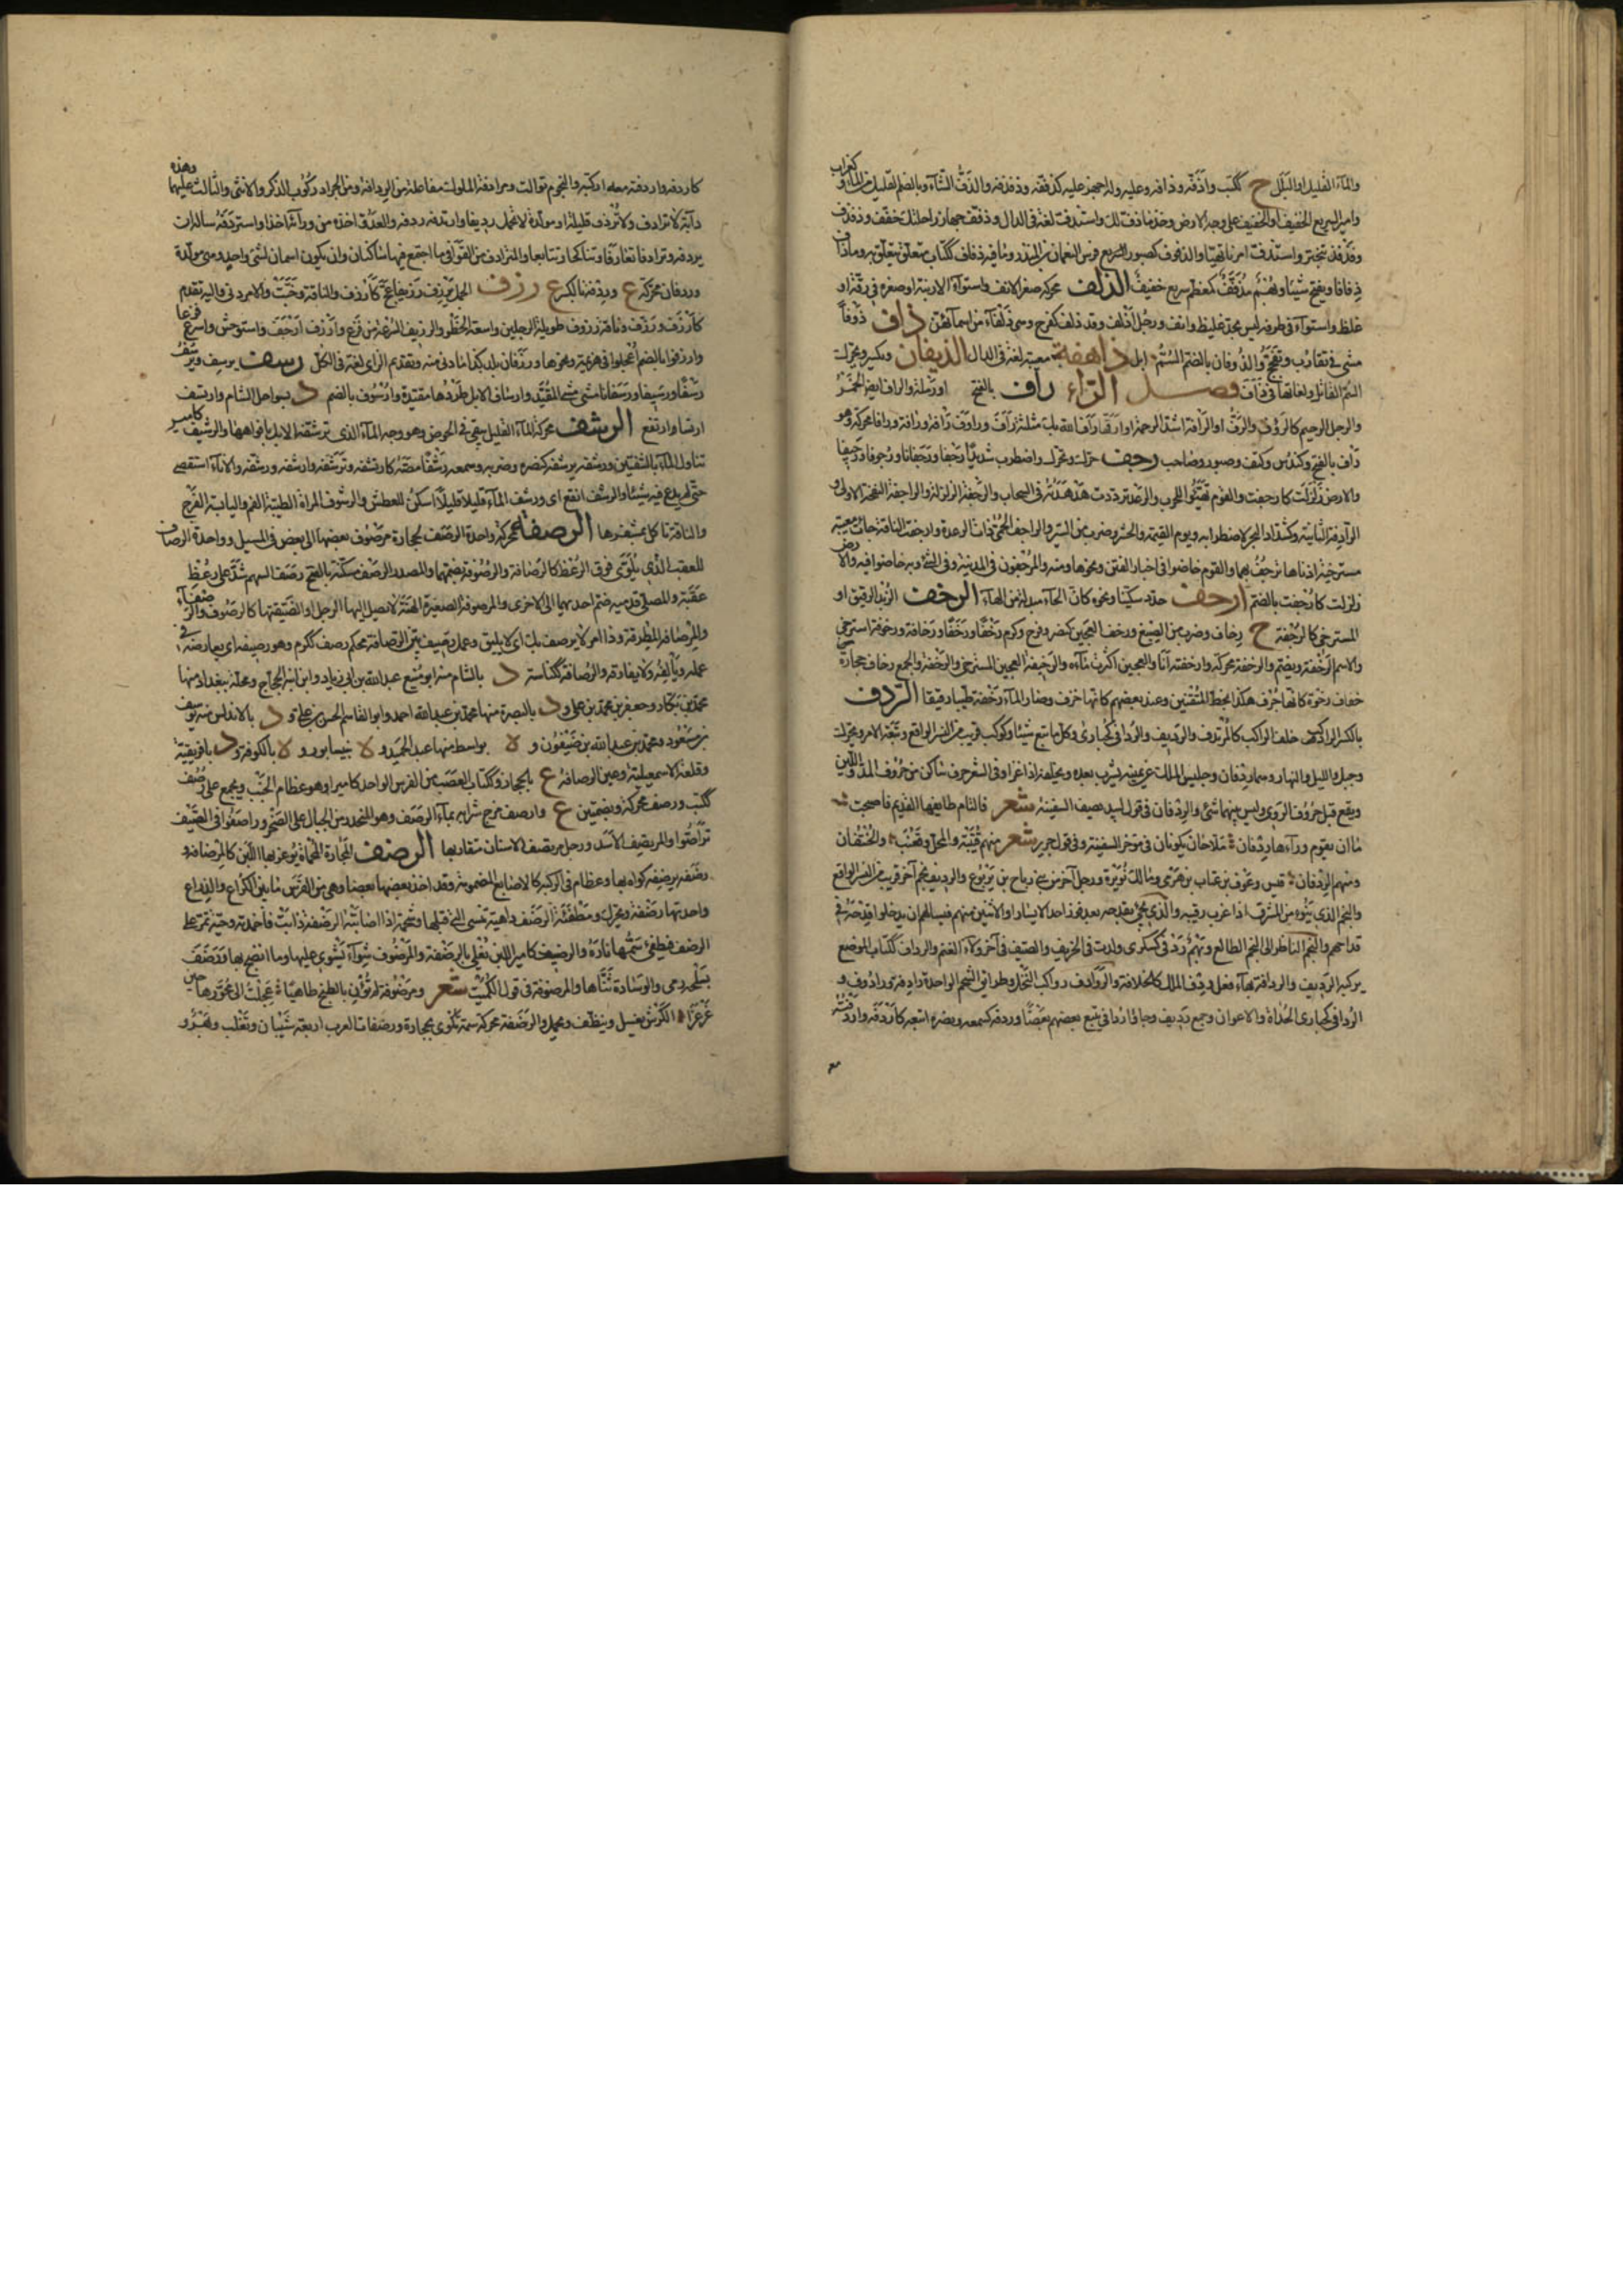 والماء القليل او البلل ج ككتب واذفه وذافه وعليه وله اجهز عليه كذففه وذفذفه والذف الشاء وبالضم القليل من الماء و كغراب
وامير السريع الخفيف او الخفيف على وجه الارض وخذ ما ذف لك واستذف لغة فى الدال وذفف جهاز راحلتك خفف وذفذف
الذلف محركة صغر الانف واستواء الارنبة او صغره فى دقة او
غلظ واستواء فى طرفه ليس بحد غليظ وانف ورجل اذلف وقد ذلف كفرح وهى ذلفاء من اسمائهن ذاف ذوفا
مشى فى تقارب وتفحج والذوفان بالضم السم ابل ذاهفة معيية لغة فى الدال الذيفان ويكسر ويحرك
السم القاتل ولغاتها فى ذأف فصل الراء رأف بالفتح او رملة والراف ايضا الخمر
والرجل الرحيم كالرؤف والرأفة اشد الرحمة او ارقها رأف الله بك مثلثة
رأف بالفتح وكندس وكتف وصبور وصاحب رجف حرك وتحرك واضطرب شديدا رجفا ورجفانا ورجوفا ورجيفا
والارض زلزلت كارجفت والقوم تهيؤا للحرب والرعد ترددت هدهدته فى السحاب والرجفة الزلزلة والراجفة النفخة الاولى و
الرادفة الثانية وكشداد البحر لاضطرابه ويوم القيمة والحشر وضرب من السير والراجف الحمى ذات الرعدة وارجفت الناقة جاءت معيية
مسترخية اذناها ترجف بهما والقوم خاضوا فى اخبار الفتن ونحوها ومنه والمرجفون فى المدينة وفى الشئ وبه خاضوا فيه والارض
زلزلت كارجفت بالضم ارحف حدد سكينا ونحوه كان الحاء مبدلة من الهاء الرخف الزبد الرقيق او
المسترخى كالرخفة ج رخاف وضرب من الصبغ ورخف العجين كنصر وفرح وكرم رخفا ورخفا ورخافة ورخوفة استرخى
والاسم الرخفة ويضم والرخفة محركة وارخفته انا والعجين اكثرت ماءه والرخيفة العجين المسترخى والرخفة والجمع رخاف حجارة
خفاف رخوة كانها جوف هكذا بخط المتقنين وعند بعضهم كانها خزف وصار الماء رخفة طينا رقيقا الردف
بالكسر الراكب خلف الراكب كالمرتدف والرديف والردافى كحبارى وكل ما تبع شيئا وكوكب قريب من النسر الواقع وتبعة الامر ويحرك
وجبل والليل والنهار وهما ردفان وجليس الملك عن يمينه يشرب بعده ويخلفه اذا غزا وفى الشعر حرف ساكن من حروف المد واللين
ويقع قبل حروف الروى وليس بينهما شئ والردفان فى قول لبيد يصف السفينة شعر فالتام طايقها القديم فاصبحت
ما ان يقوم درأها ردفان ملاحان يكونان فى مؤخر السفينة وفى قول جرير شعر منهم عتيبة والمحل وقعنب والحنتفان
ومنهم الردفان قيس وعوف بن عتاب بن هرمى ومالك نويرة ورجل آخر من بنى رباح بن يربوع والرديف نجم آخر قريب من النسر الواقع
والنجم الذى ينوء من المشرق اذا غرب رقيبه والذى يجئ بقدحه بعد فوز احد الايسار او الاثنين منهم فسالهم ان يدخلوا قدحه فى
قداحهم والنجم الناظر الى النجم الطالع وبهم ردفى كسكرى ولدت فى الخريف والصيف فى آخر ولاد الغنم والرداف ككتاب الموضع
يركبه الرديف والردافة بهاء فعل ردف الملك كالخلافة والروادف رواكب النخل وطرائق الشحم الواحدة رادفة ورادوف و
الردافى كحبارى الحداة والاعوان وجمع رديف وجاؤا ردافى يتبع بعضهم بعضا وردفه كسمعه ونصره اتبعه كاردفه واردفته
مع
كاردفه واردفته معه اركبته والنجوم توالت ومرادفة الملوك مفاعلة من الردافة ومن الجراد ركوب الذكر والانثى والثالث عليهما وهذه
دابة لا ترادف ولا تردف قليلة او مولدة لا تحمل رديفا وارتدفه ردفه والعدو اخذه من ورائه اخذا واستردفه ساله ان
يردفه وترادفا تعاونا وتناكحا وتتابعا والمترادف من القوافى ما اجتمع فيها ساكنان وان يكون اسمان لشئ واحد وهى مولدة
وردفان محركة ع وردفة بالكسر ع رزف الجمل يرزف رزيفا عج كارزف والناقة خبت والامر دنى واليه تقدم
كارزف ورزف وناقة رزوف طويلة الرجلين واسعة الخطو والرزيف السرعة من فزع وارزف ارجف واستوحش واسرع فزعا
رسف يرسف ويرسف
رسفا ورسيفا ورسفانا مشى مشى المقيد وارساف الابل طردها مقيدة وارسوف بالضم د بسواحل الشام وارتسف
ارتسافا ارتفع الرشف محركة الماء القليل يبقى فى الحوض وهو وجه الماء الذى ترشفه الابل بافواهها والرشيف كامير
تناول الماء بالشفتين ورشفه يرشفه كنصره وضربه وسمعه رشفا مصه كارتشفه وترشفه وارشفه ورشفه والاناء استقصى
حتى لم يدع فيه شيئا والرشف انقع اى ورشف الماء قليلا قليلا اسكن للعطش والرشوف المراة الطيبة الفم واليابسة الفرج
والناقة تاكل بمشفرها الرصفة محركة واحدة الرصف لحجارة مرصوف بعضها الى بعض فى المسيل وواحدة الرصاف
للعقب الذى يلوى فوق الرعظ كالرصافة والرصوفة بضمهما والمصدر الرصف مسكنة بالفتح رصف السهم شد على رعظه
عقبة والمصلى قدميه ضم احديهما الى الاخرى والمرصوفة الصغيرة الهنة لا يصل اليها الرجل او الضيقتها كالرصوف والرصفاء
والمرصافة المطرقة وذا امر لا يرصف بك اى لا يليق وعمل رصيف بين الرصافة محكم رصف ككرم وهو رصيفه اى يعارضه فى
عمله ويألفه ولا يفارقه والرصافة ككناسة د بالشام منه ابو منيع عبد الله بن ابى زياد وابن ابنه الحجاج ومحلة ببغداد منها
محمد بن بكار وجعفر بن محمد بن على و د بالبصرة منها محمد بن عبد الله احمد وابو القاسم الحسن بن على و د بالاندلس منه يوسف
بن مسعود ومحمد بن عبد الله بن ضيفون و ة بواسط منها عبد المجيد و ة بنيسابور و ة بالكوفة و د بافريقية
وقلعة للاسمعيلية وعين الرصافة ع بالحجاز وككتاب العصب من الفرس الواحد كامير او هو عظام الجنب ويجمع على رصف
ككتب ورصف محركة وبضمتين ع وارصف مزج شرابه بماء الرصف وهو المنحدر من الجبال على الصخر وراصفوا فى الصف
تراصفوا والمرتصف الاسد ورجل مرتصف الاسنان متقاربها الرضف الحجارة المحماة يوغر بها اللبن كالمرضافة و
رضفه يرضفه كواه بها وعظام فى الركبة كالاصابع المضمومة وقد اخذ بعضها بعضا وهى من الفرس ما بين الكراع والذراع
واحدتها رضفة ويحرك ومطفئة الرضف داهية تنسى التى قبلها وشحمة اذا اصابت الرضفة ذابت فاخمدته وحية تمر على
الرضف فيطفئ سمها ناره والرضيف كامير اللبن يغلى بالرضفة والمرضوف شواء يشوى عليها وما انضج بها ورضف
بسلحه رمى والوسادة ثناها والمرضوفة فى قول الكميت شعر ومرضوفة لم تؤن بالطبخ طاهيا عجلت الى محورها حين
غرغرا الكرش يغسل وينظف ويحمل والرضفة محركة سمة تكوى بحجارة ورضفات العرب اربعة شيبان وتغلب وبهراء و